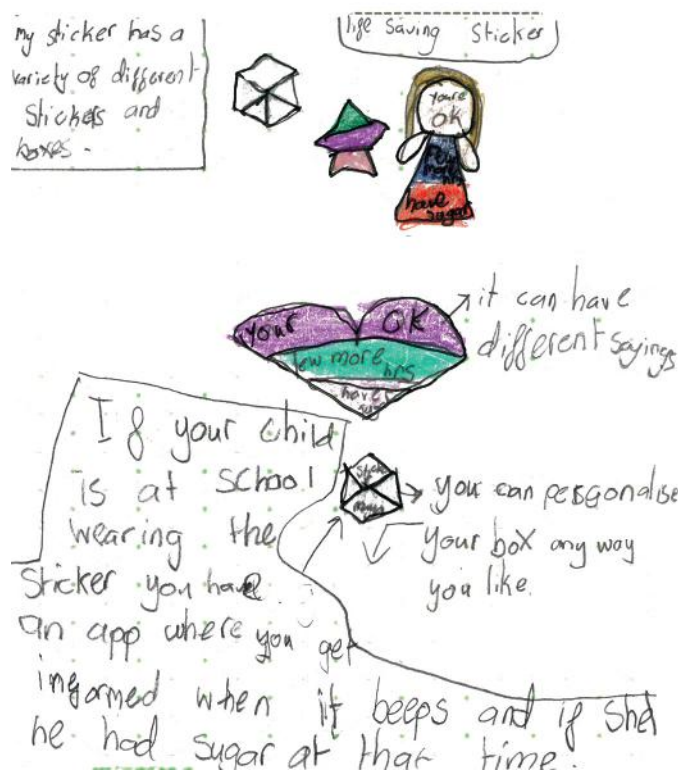 my sticker has a
variety of different
stickers and
boxes.
life saving sticker
youre
OK
few
more
hrs
have
sugar
your OK
few more
hrs
have
it can have
different sayings
If your child
is at school
wearing the
sticker you have
an app where you get
informed when it beeps and if she
he had sugar at that time.
you can personalise
your box any way
you like.